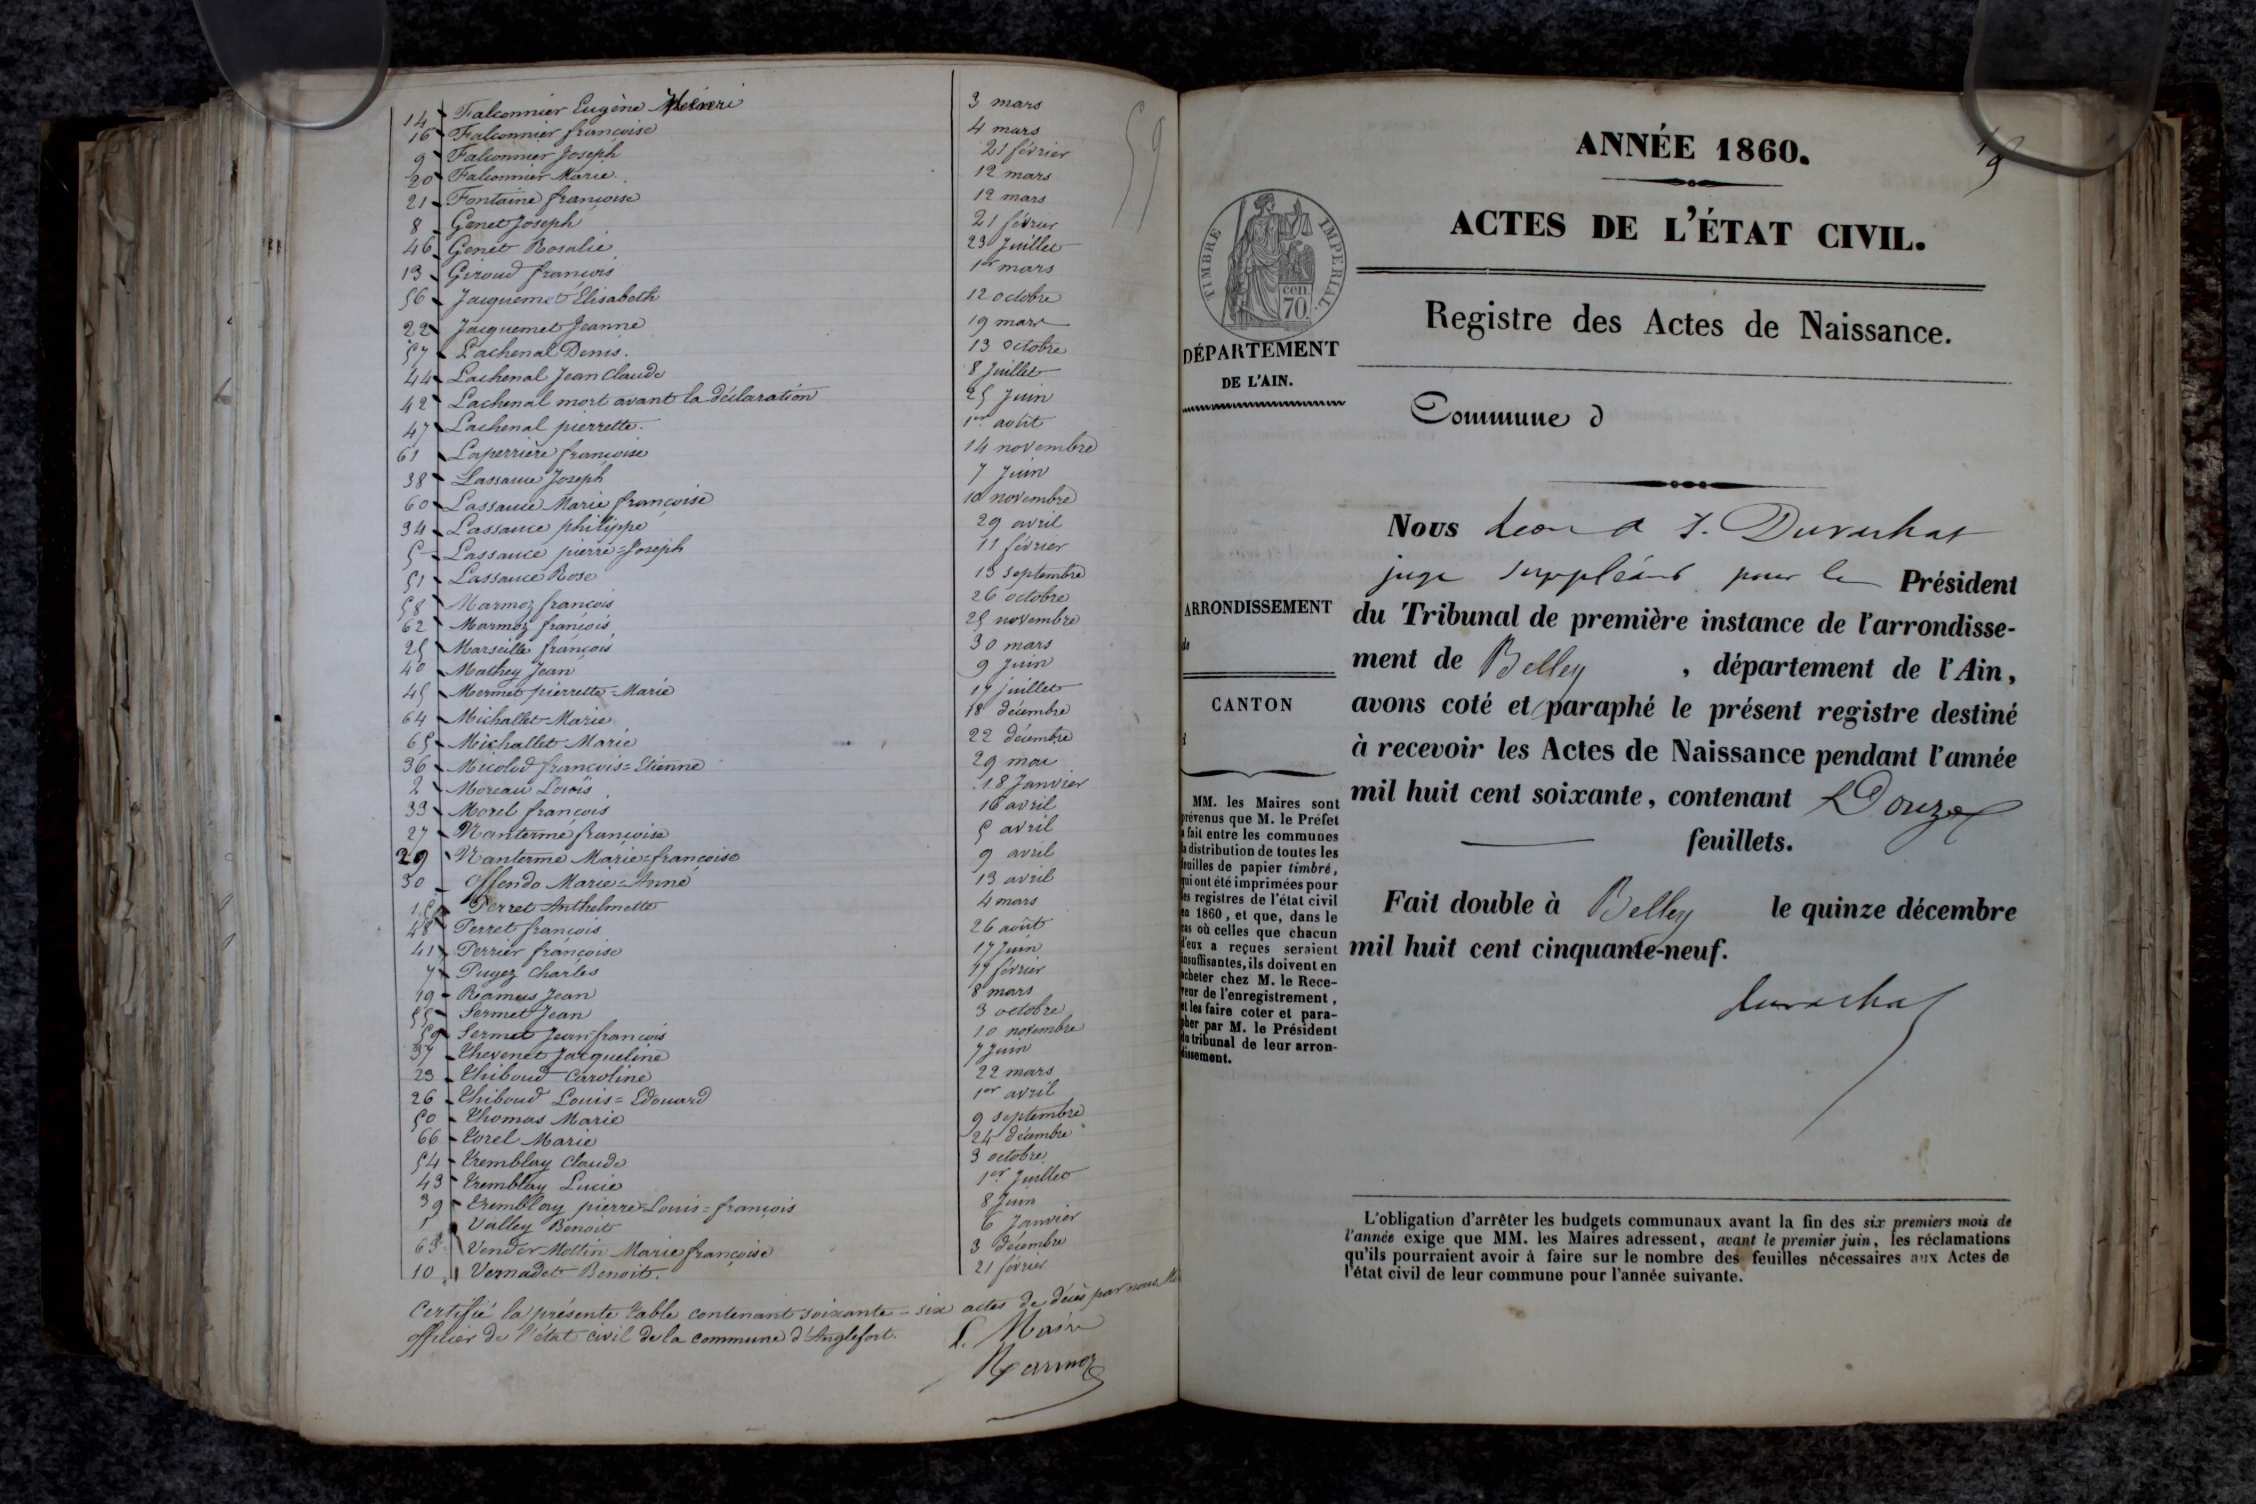 14 Falconnier Eugène Henri 3 mars
16 Falconnier françoise 4 mars
9 Falconnier Joseph 21 février
20 Falconnier Marie 12 mars
21 Fontaine françoise 12 mars
8 Genet Joseph 21 février
46 Genet Rosalie 23 Juillet
13 Giroud françois 1er mars
56 Jacquemet Elisabeth 12 octobre
22 Jacquemet Jeanne 19 mars
57 Lachenal Denis. 13 octobre
44 Lachenal Jean Claude 8 Juillet
42 Lachenal mort avant la déclaration 25 Juin
47 Lachenal pierrette. 1er août
61 Laperrière françoise 14 novembre
38 Lassauce Joseph 7 Juin
60 Lassauce Marie françoise 10 novembre
34 Lassauce philippe 29 avril
5 Lassauce pierre=Joseph 11 février
51 Lassauce Rose 13 septembre
58 Marmoz françois 26 octobre
62 Marmoz françois 25 novembre
25 Marseille françois 30 mars
40 Mathey Jean 9 Juin
45 Mermet pierrette=Marie 17 juillet
64 Michallet Marie 18 décembre
65 Michallet Marie 22 décembre
36 Micolod françois=Etienne 29 mai
2 Moreau Louis 18 Janvier
33 Morel françois 16 avril
27 Nanterme françoise 5 avril
29 Nanterme Marie=françoise 9 avril
30 Offendo Marie=Anne 13 avril
15 Perret Anthelmette 4 mars
48 Perret françois 26 août
41 Perrier françoise 17 Juin
7 Pugez Charles 17 février
19 Ramus Jean 8 mars
55 Sermet Jean 3 octobre
59 Sermet Jean françois 10 novembre
37 Thevenet Jacqueline 7 Juin
23 Thiboud Caroline 22 mars
26 Thiboud Louis=Edouard 1er avril
50 Thomas Marie 9 septembre
66 Torel Marie 24 décembre
54 Tremblay Claude 3 octobre
43 Tremblay Lucie 1er Juillet
39 Tremblay pierre=Louis=françois 8 Juin
1 Valley Benoit 6 Janvier
63 Vender Mottin Marie françoise 3 décembre
10 Vernadet Benoit. 21 février
Certifié la présente table contenant soixante=six actes de décès par nous
officier de l'état civil de la commune d'Anglefort.
L. Maire
Marmoz
59
ANNÉE 1860.
ACTES DE L'ÉTAT CIVIL.
TIMBRE IMPERIAL.
cen.
70.
Registre des Actes de Naissance.
DÉPARTEMENT
DE L'AIN.
Commune d
Nous
juge suppléant pour le Président
du Tribunal de première instance de l'arrondisse-
ment de Belley, département de l'Ain,
avons coté et paraphé le présent registre destiné
à recevoir les Actes de Naissance pendant l'année
mil huit cent soixante, contenant Douze
feuillets.
Fait double à Belley le quinze décembre
mil huit cent cinquante-neuf.
ARRONDISSEMENT
de
CANTON
MM. les Maires sont
prévenus que M. le Préfet
a fait entre les communes
la distribution de toutes les
feuilles de papier timbré,
qui ont été imprimées pour
les registres de l'état civil
en 1860, et que, dans le
cas où celles que chacun
d'eux a reçues seraient
insuffisantes, ils doivent en
acheter chez M. le Rece-
veur de l'enregistrement,
et les faire coter et para-
pher par M. le Président
du tribunal de leur arron-
dissement.
L'obligation d'arrêter les budgets communaux avant la fin des six premiers mois de
l'année exige que MM. les Maires adressent, avant le premier juin, les réclamations
qu'ils pourraient avoir à faire sur le nombre des feuilles nécessaires aux Actes de
l'état civil de leur commune pour l'année suivante.